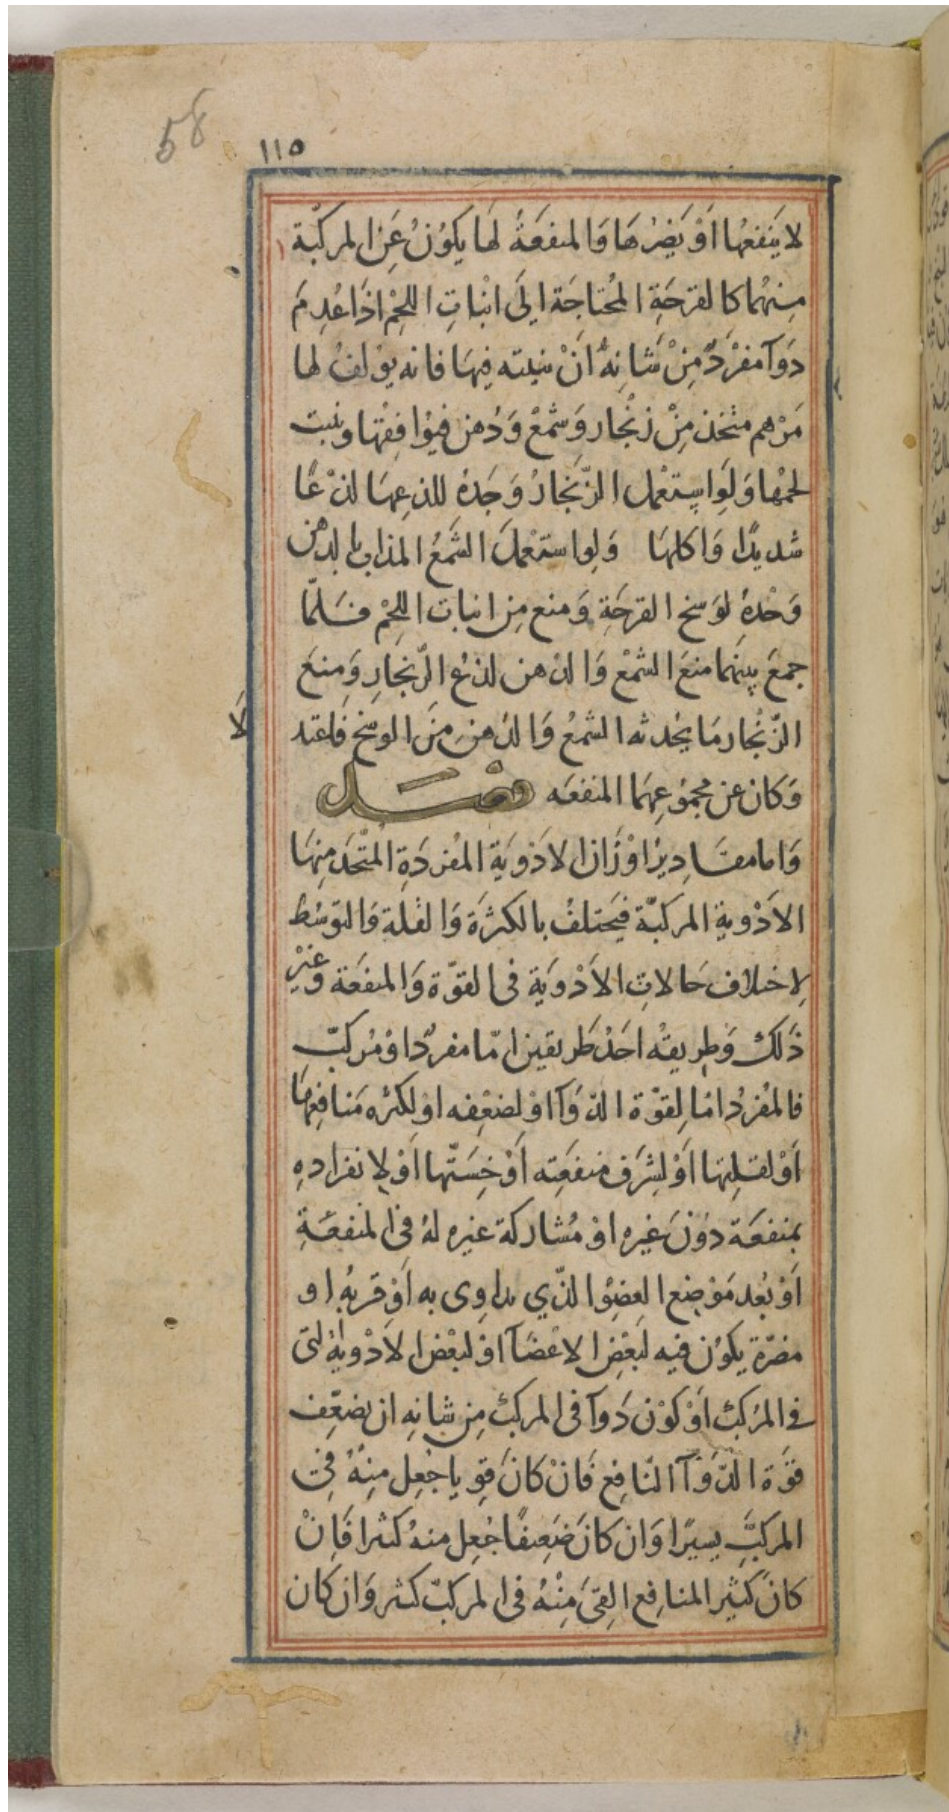 58
١١٥
لا ينفعها اَوْ يَضرهَا وَالمنفعَةُ لهَا يكوُنُ عَنِ المركبّة
مِنهُما كالقرحَةِ المحُتاجَة اِلَى انْباتِ اللحْمِ اذَا عُدِمَ
دَوَآ مفرَدٌ مِنْ شَانِهٌ اَنْ ينبته فِيهَا فانه يؤلفُ لها
مَرْهم متخذ مِنْ زنُجار وَشمْعْ وَدُهن فيُوافِقُها وينبت
لحمْها وَلَو استعْمل الزّنجارُ وَحدَهُ للذعِهَا لذْعًا
شديدًا وَاكلهَا وَلو استعْملَ الشَّمعُ المذاب بالدهن
وَحْدهُ لوَسخ القرحَةِ وَمنع مِن انبات اللحْم فَلمّا
جمعَ بينهما منعَ الشمْع وَالدْهن لذعُ الزّنجارِ وَمنعَ
الزّنُجار مَا يحُدثه الشمعُ وَالدُهنَ مِنَ الوسَخِ فَاعتد
لَا
وَكان عن مجموُعِهمَا المنفعَه فصَل
وَاما مقَاديرُ اوْزَان الادْويَة المفُردَةِ المتّحذ مِنهَا
الاَدْوية المركبّة فيَختلفُ بالكثرَة وَالقلة وَالتوَسُط
لِاختلاف حَالاتِ الاَدْويَة فى القوّة وَالمنفعَة وَغيْرِ
ذَلكْ وَطريقْه احَدْ طَريقين امّا مفردٌ اوْ مُركبّ
فالمُفردُ امّا لِقوْة الدّوَآ اوْ لِضعْفِه اوْ لكثرَه مَنافعِهَا
اَوْ لقلتِها اَوْ لشَرَفِ منفعَتِه اَوْ خِسَتّها اَوْ لِانفرَادهِ
بمنفعَة دوُنَ غيره اوْ مُشاركة غيره لهُ فى المنفعَةِ
اَوْ بُعد مَوْضع العضُوِ الذّي يداوى به اَوْ قربُه او
مضرّة يكوُن فيه لبَعْضِ الاعْضَآ اوْ لبَعْض الادْوية التى
فى المرَكبْ اَوْ كوْن دَوآ فى المركبْ مِن شانِه ان يضعِّف
قوَّة الدّوَآ النّافع فَانْ كانَ قوِيا جُعِل مِنهُ فى
المركبِّ يسيرًا وَان كانَ ضَعِيفًا جُعِل منهُ كثيرا فَاِنْ
كانَ كثيَر المنافِع القىَ مِنْهُ فى المركبّ كثير وَان كان